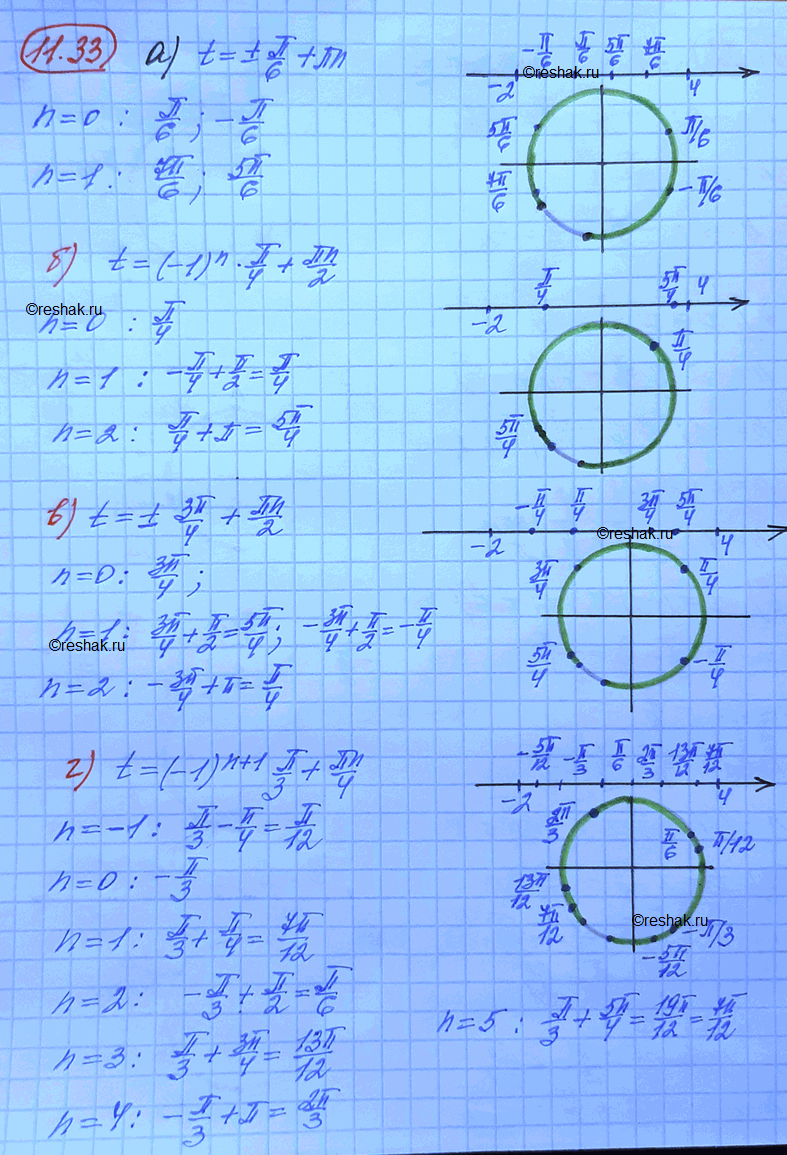 11.33 а) t = ± π/6 + πn
n=0 : π/6 ; -π/6
n=1 : 7π/6 ; 5π/6
-π/6 π/6 5π/6 7π/6
©reshak.ru
-2 4
5π/6 π/6
7π/6 -π/6
б) t = (-1)^n · π/4 + πn/2
©reshak.ru
n=0 : π/4
n=1 : -π/4 + π/2 = π/4
n=2 : π/4 + π = 5π/4
π/4 5π/4 4
-2
π/4
5π/4
в) t = ± 3π/4 + πn/2
n=0 : 3π/4 ;
n=1 : 3π/4 + π/2 = 5π/4 ; -3π/4 + π/2 = -π/4
©reshak.ru
n=2 : -3π/4 + π = π/4
-π/4 π/4 3π/4 5π/4
©reshak.ru
-2 4
3π/4 π/4
5π/4 -π/4
г) t = (-1)^n+1 π/3 + πn/4
n=-1 : π/3 - π/4 = π/12
n=0 : -π/3
n=1 : π/3 + π/4 = 7π/12
n=2 : -π/3 + π/2 = π/6
n=3 : π/3 + 3π/4 = 13π/12
n=4 : -π/3 + π = 2π/3
-5π/12 -π/3 π/6 2π/3 13π/12 7π/12
-2 4
2π/3 π/6 π/12
13π/12
7π/12 ©reshak.ru -π/3
-5π/12
n=5 : π/3 + 5π/4 = 19π/12 = 7π/12